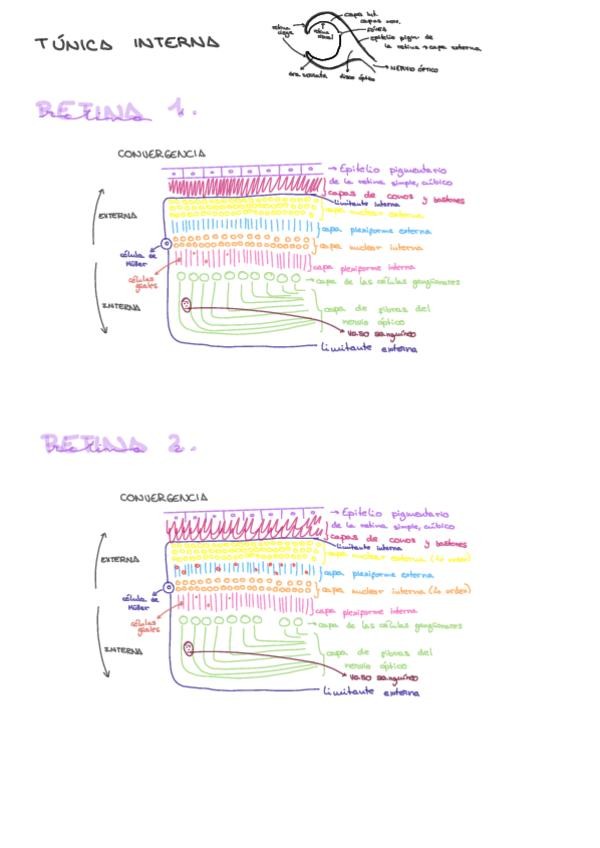 TÚNICA INTERNA
retina
ciega
capa int.
capas nerv.
retina
visual
fóvea
epitelio pigm. de
la retina → capa externa
NERVIO ÓPTICO
ora serrata
disco óptico
RETINA 1.
retina
CONVERGENCIA
→ Epitelio pigmentario
de la retina simple, cúbico
capas de conos y bastones
limitante interna
capa nuclear externa
EXTERNA
capa plexiforme externa
capa nuclear interna
célula de
Müller
capa plexiforme interna
células
gliales
capa de las células ganglionares
INTERNA
capa de fibras del
nervio óptico
vaso sanguíneo
limitante externa
RETINA 2.
retina
CONVERGENCIA
→ Epitelio pigmentario
de la retina simple, cúbico
capas de conos y bastones
limitante interna
capa nuclear externa
EXTERNA
capa plexiforme externa
capa nuclear interna
célula de
Müller
capa plexiforme interna
células
gliales
capa de las células ganglionares
INTERNA
capa de fibras del
nervio óptico
vaso sanguíneo
limitante externa